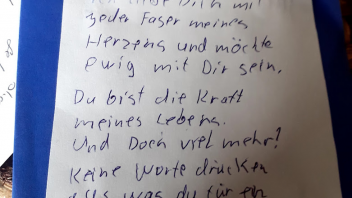 Ich liebe Dich mit
jeder Faser meines
Herzens und möchte
ewig mit Dir sein.
Du bist die Kraft
meines Lebens.
Und Doch viel mehr!
Keine Worte drücken
aus was du für ein